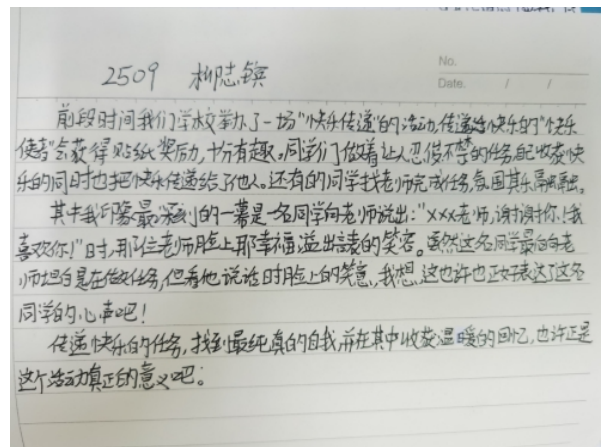 No.
Date. / /
2509 柳志
前段时间我们学校举办了一场"快乐传递"的活动,传递给快乐的"快乐
使者"会获得贴纸奖励,十分有趣。同学们做着让人忍俊不禁的任务,自己收获快
乐的同时也把快乐传递给了他人。还有的同学找老师完成任务,氛围其乐融融。
其中我印象最深刻的一幕是一名同学向老师说出:"XXX老师,谢谢你!我
喜欢你!"时,那位老师脸上那幸福溢出言表的笑容。虽然这名同学最后向老
师坦白是在做任务,但看他说话时脸上的笑意,我想,这也许也正好表达了这名
同学的心声吧!
传递快乐的任务,找到最纯真的自我,并在其中收获温暖的回忆,也许正是
这个活动真正的意义吧。